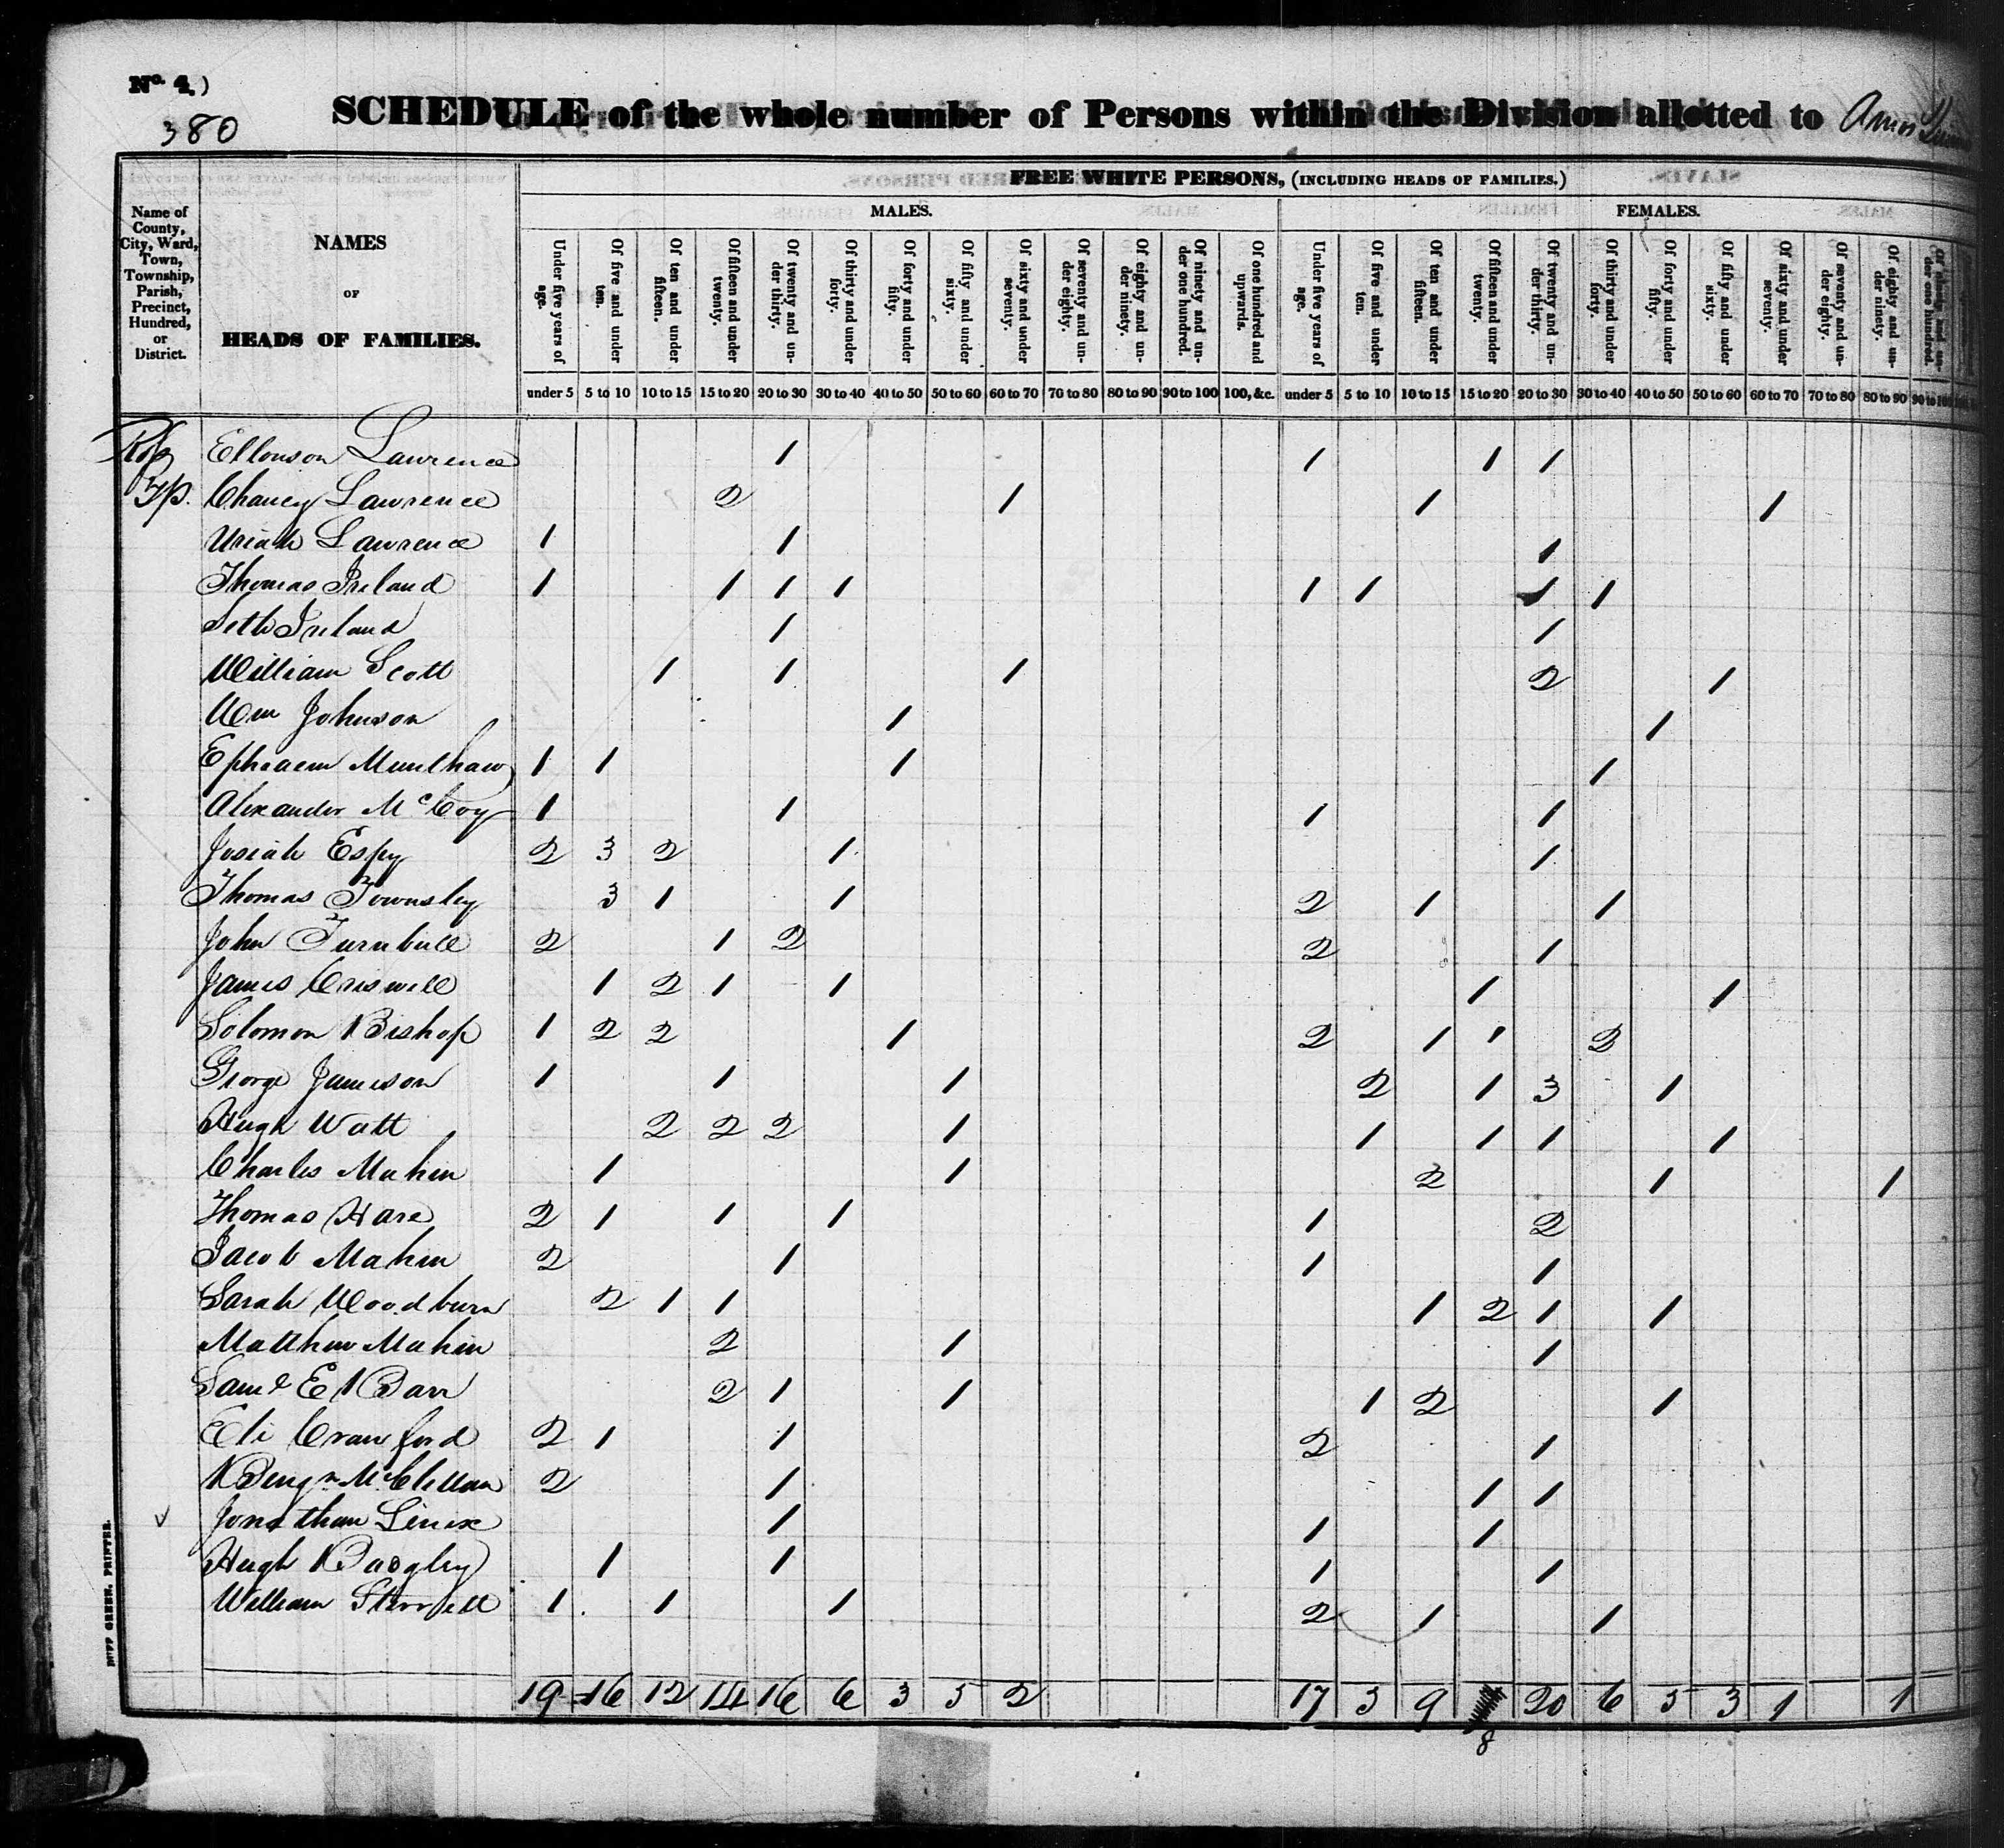 No. 4.)
380
SCHEDULE of the whole number of Persons within the Division allotted to Amos
FREE WHITE PERSONS, (INCLUDING HEADS OF FAMILIES.)
MALES. FEMALES.
Name of County, City, Ward, Town, Township, Parish, Precinct, Hundred, or District.
NAMES OF HEADS OF FAMILIES.
Under five years of age. Of five and under ten. Of ten and under fifteen. Of fifteen and under twenty. Of twenty and under thirty. Of thirty and under forty. Of forty and under fifty. Of fifty and under sixty. Of sixty and under seventy. Of seventy and under eighty. Of eighty and under ninety. Of ninety and under one hundred. Of one hundred and upwards. Under five years of age. Of five and under ten. Of ten and under fifteen. Of fifteen and under twenty. Of twenty and under thirty. Of thirty and under forty. Of forty and under fifty. Of fifty and under sixty. Of sixty and under seventy. Of seventy and under eighty. Of eighty and under ninety. Of ninety and under one hundred.
under 5 5 to 10 10 to 15 15 to 20 20 to 30 30 to 40 40 to 50 50 to 60 60 to 70 70 to 80 80 to 90 90 to 100 100, &c. under 5 5 to 10 10 to 15 15 to 20 20 to 30 30 to 40 40 to 50 50 to 60 60 to 70 70 to 80 80 to 90 90 to 100
Ellonson Lawrence 1 1 1 1
Tp. Chancy Lawrence 2 1 1 1
Uriah Lawrence 1 1 1
Thomas Ireland 1 1 1 1 1 1 1 1
Seth Ireland 1 1
William Scott 1 1 1 2 1
Wm Johnson 1 1
Ephraem Munthaw 1 1 1 1
Alexander McCoy 1 1 1 1
Josiah Espy 2 3 2 1 1
Thomas Townsley 3 1 1 2 1 1
John Turnbull 2 1 2 2 1
James Criswell 1 2 1 1 1 1
Solomon Bishop 1 2 2 1 2 1 1 2
George Jameson 1 1 1 2 1 3 1
Hugh Watt 2 2 2 1 1 1 1 1
Charles Mahin 1 1 2 1 1
Thomas Hare 2 1 1 1 1 2
Jacob Mahin 2 1 1 1
Sarah Woodburn 2 1 1 1 2 1 1
Matthew Mahin 2 1 1
Saml E Barr 2 1 1 1 2 1
Eli Crawford 2 1 1 2 1
Benjn McClellan 2 1 1 1
Jonathan Linix 1 1 1
Hugh Baogley 1 1 1 1
William Sterrett 1 1 1 2 1 1
19 16 12 14 16 6 3 5 2 17 5 9 8 20 6 5 3 1 1
DUFF GREEN, PRINTER.